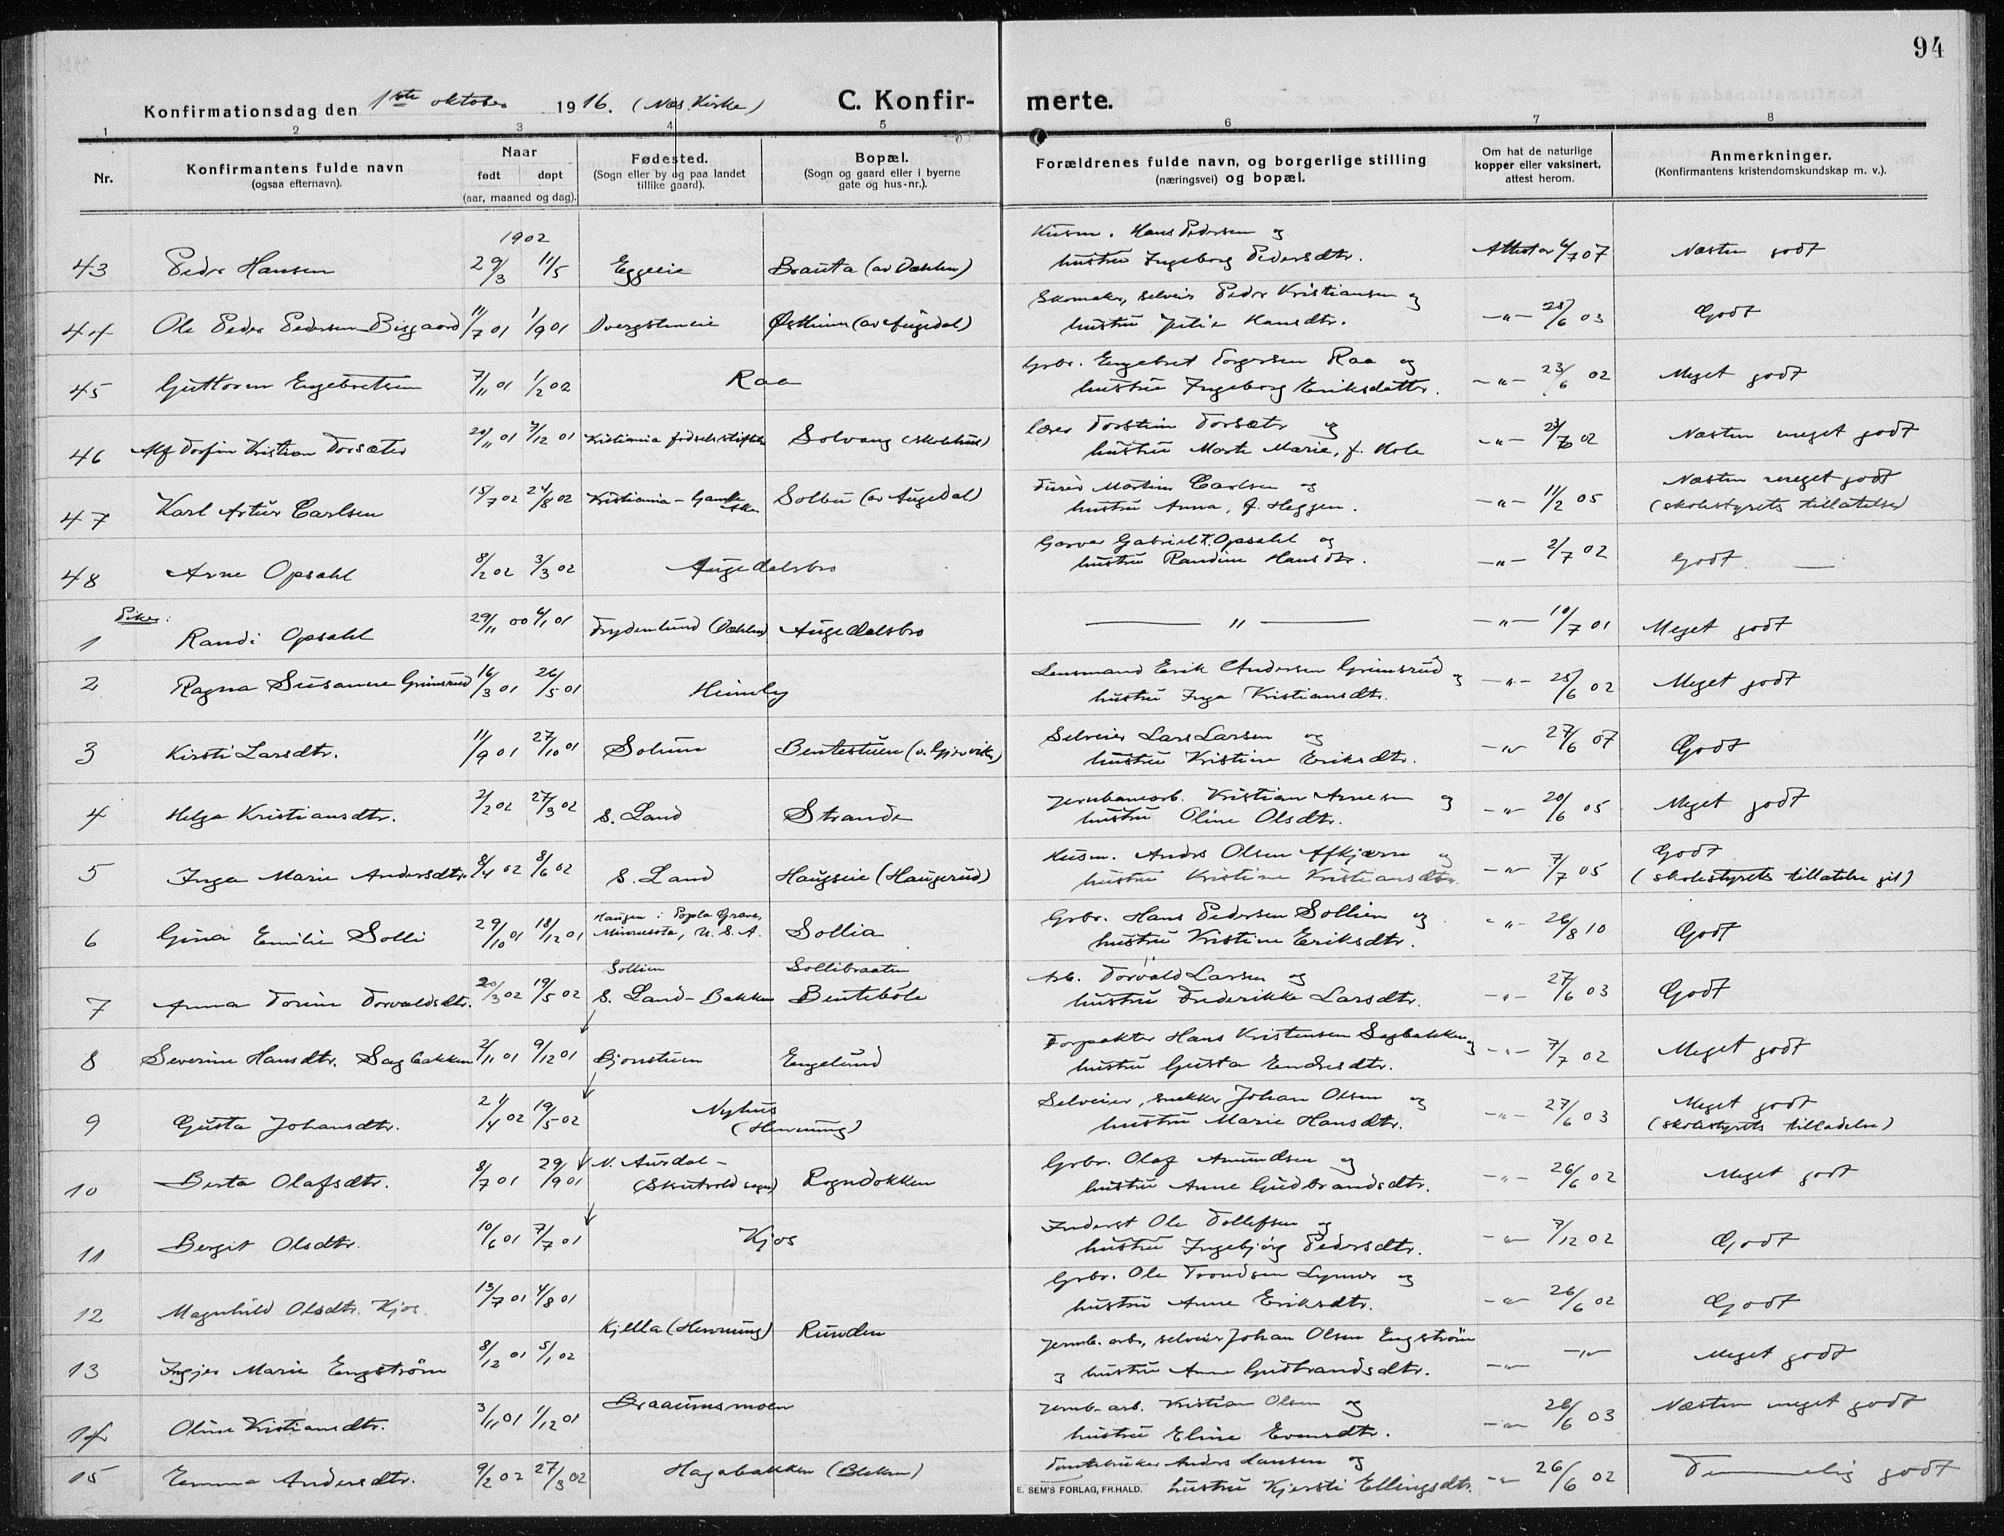 94
Konfirmationsdag den 1ste oktober 1916. (Nes Kirke)
C. Konfir- merte.
1 2 3 4 5 6 7 8
Nr.
Konfirmantens fulde navn
(ogsaa efternavn).
Naar
født døpt
(aar, maaned og dag).
Fødested.
(Sogn eller by og paa landet
tillike gaard).
Bopæl.
(Sogn og gaard eller i byerne
gate og hus-nr.).
Forældrenes fulde navn, og borgerlige stilling
(næringsvei) og bopæl.
Om hat de naturlige
kopper eller vaksinert,
attest herom.
Anmerkninger.
(Konfirmantens kristendomskundskap m. v.).
1902
43 Peder Hansen 29/3 11/5 Eggeeie Brauta (av Dæhlen) Husm. Hans Pedersen og
hustru Ingeborg Pedersdtr. Attest av 6/7 07 Næsten godt
44 Ole Peder Pedersen Bisgaard 11/7 01 1/9 01 Dvergsteneie Østheim (av Augedal) Skomaker, selveier Peder Kristiansen og
hustru Julie Hansdtr. -"- 25/6 03 Godt
45 Guttorm Engebretsen 7/11 01 1/2 02 Raa Grbr. Engebret Torgersen Raa og
hustru Ingeborg Eriksdatter. -"- 23/6 02 Meget godt
46 Alf Torfin Kristian Torsæter 20/11 01 7/12 01 Kristiania fødselsstiftelse Solvang (skolehus) Lærer Torstein Torsæter og
hustru Marte Marie, f. Hole -"- 02 Næsten meget godt
47 Karl Artur Carlsen 15/7 02 24/8 02 Kristiania - Solbu (av Augedal) Martin Carlsen og
hustru Anna, f. Heggen. -"- 11/2 05 Næsten meget godt
(skolestyrets tillatelse)
48 Arne Opsahl 8/2 02 3/3 02 Augedalsbro Garver Gabriel K. Opsahl og
hustru Randine Hansdtr. -"- 2/7 02 Godt. —
Piker:
1 Randi Opsahl 29/11 00 6/1 01 Frydenlund (Dæhlen) Augedalsbro — " — -"- 10/7 01 Meget godt
2 Ragna Susanne Grimsrud 16/3 01 26/5 01 Heimly Lensmand Erik Andersen Grimsrud og
hustru Inga Kristiansdtr. -"- 25/6 02 Meget godt
3 Kirsti Larsdtr. 11/9 01 27/10 01 Solum Bentestuen (v. Gjervik) Selveier Lars Larsen og
hustru Kristine Eriksdtr. -"- 27/6 07 Godt
4 Helga Kristiansdtr. 2/2 02 27/3 02 S. Land Strande Jernbanearb. Kristian Arnesen og
hustru Oline Olsdtr. -"- 20/6 05 Meget godt
5 Inga Marie Andersdtr. 8/4 02 8/6 02 S. Land Haugseie (Haugerud) Husm. Anders Olsen Afkjærn og
hustru Kristine Kristiansdtr. -"- 7/7 05 Godt
(skolestyrets tillatelse git)
6 Gina Emilie Solli 29/10 01 18/12 01 Haugen i Popla Grove,
Minnesota, U. S. A. Sollia Grbr. Hans Pedersen Sollien og
hustru Kristine Eriksdtr. -"- 26/8 10 Godt
7 Anna Torine Torvaldsdtr. 20/3 02 19/5 02 Sollien
S. Land - Bakken Sollibraaten
Bentebøle Arb. Torvald Larsen og
hustru Frederikke Larsdtr. -"- 27/6 03 Godt
8 Severine Hansdtr. Sagbakken 2/11 01 9/12 01 Bjonstuen Engelund Forpakter Hans Kristensen Sagbakken og
hustru Gusta Endresdtr. -"- 7/7 02 Meget godt
9 Gusta Johansdtr. 21/4 02 19/5 02 Nyhus
(Hennung) Selveier, snekker Johan Olsen og
hustru Marie Hansdtr. -"- 27/6 03 Meget godt
(skolestyrets tilladelse)
10 Berta Olafsdtr. 8/7 01 29/9 01 N. Aurdal -
(Skrutvold sogn) Rogndokken Grbr. Olaf Amundsen og
hustru Anne Gudbrandsdtr. -"- 26/6 02 Meget godt
11 Bergit Olsdtr. 10/6 01 7/7 01 Kjos Inderst Ole Tollefsen og
hustru Ingebjørg Pedersdtr. -"- 7/12 02 Godt
12 Magnhild Olsdtr. Kjos. 13/7 01 4/8 01 Grbr. Ole Trondsen og
hustru Anne Eriksdtr. -"- 26/6 02 Godt
Kjella (Hennung) Runden
13 Ingjer Marie Engstrøm 8/12 01 5/1 02 Jernb. arb., selveier Johan Olsen Engstrøm
og hustru Anne Gudbrandsdtr. -"- -"- Meget godt
14 Oline Kristiansdtr. 3/11 01 1/12 01 Braaumsmoen Jernb. arb. Kristian Olsen og
hustru Eline Evensdtr. -"- 26/6 03 Næsten meget godt
15 Emma Andersdtr. 9/2 02 27/3 02 Hagabakken (Bleken) Anders Hansen og
hustru Kjersti Ellingsdtr. -"- 26/6 02 Temmelig godt
E. SEM'S FORLAG, FR.HALD.